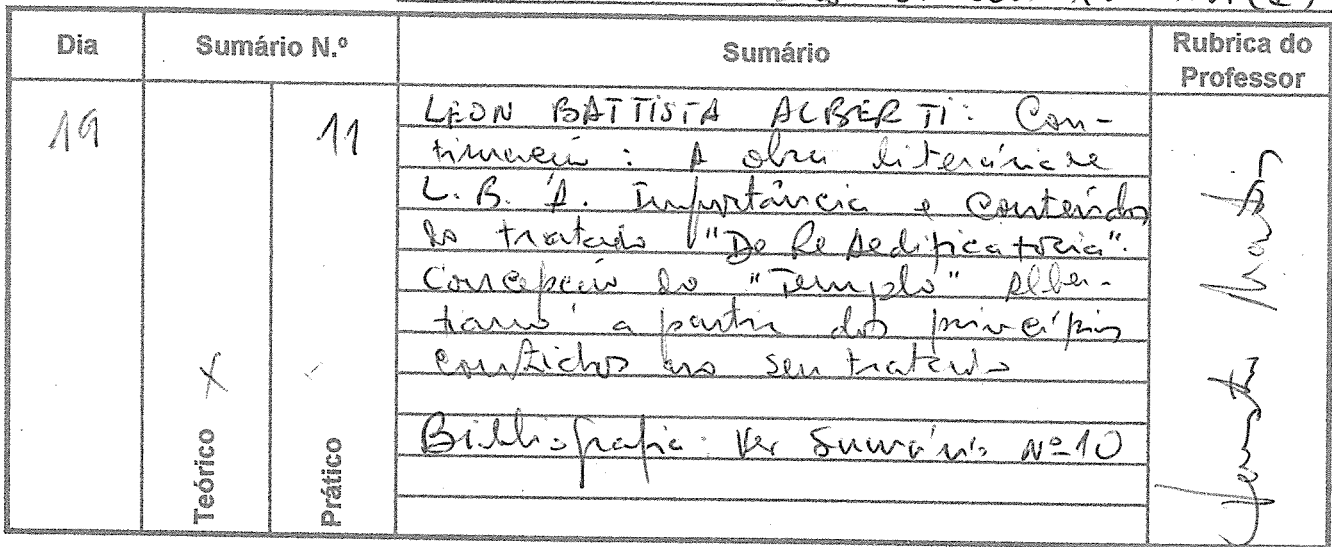 Dia Sumário N.º Sumário Rubrica do Professor
19 11
LEON BATTISTA ALBERTI: Con-
tinuação : A obra literária de
L. B. A. Importância e Conteúdo
do tratado "De Re Aedificatoria".
Concepção do "Templo" Alber-
tiano a partir dos princípios
contidos no seu tratado
Bibliografia: Ver Sumário Nº 10
Teórico X
Prático